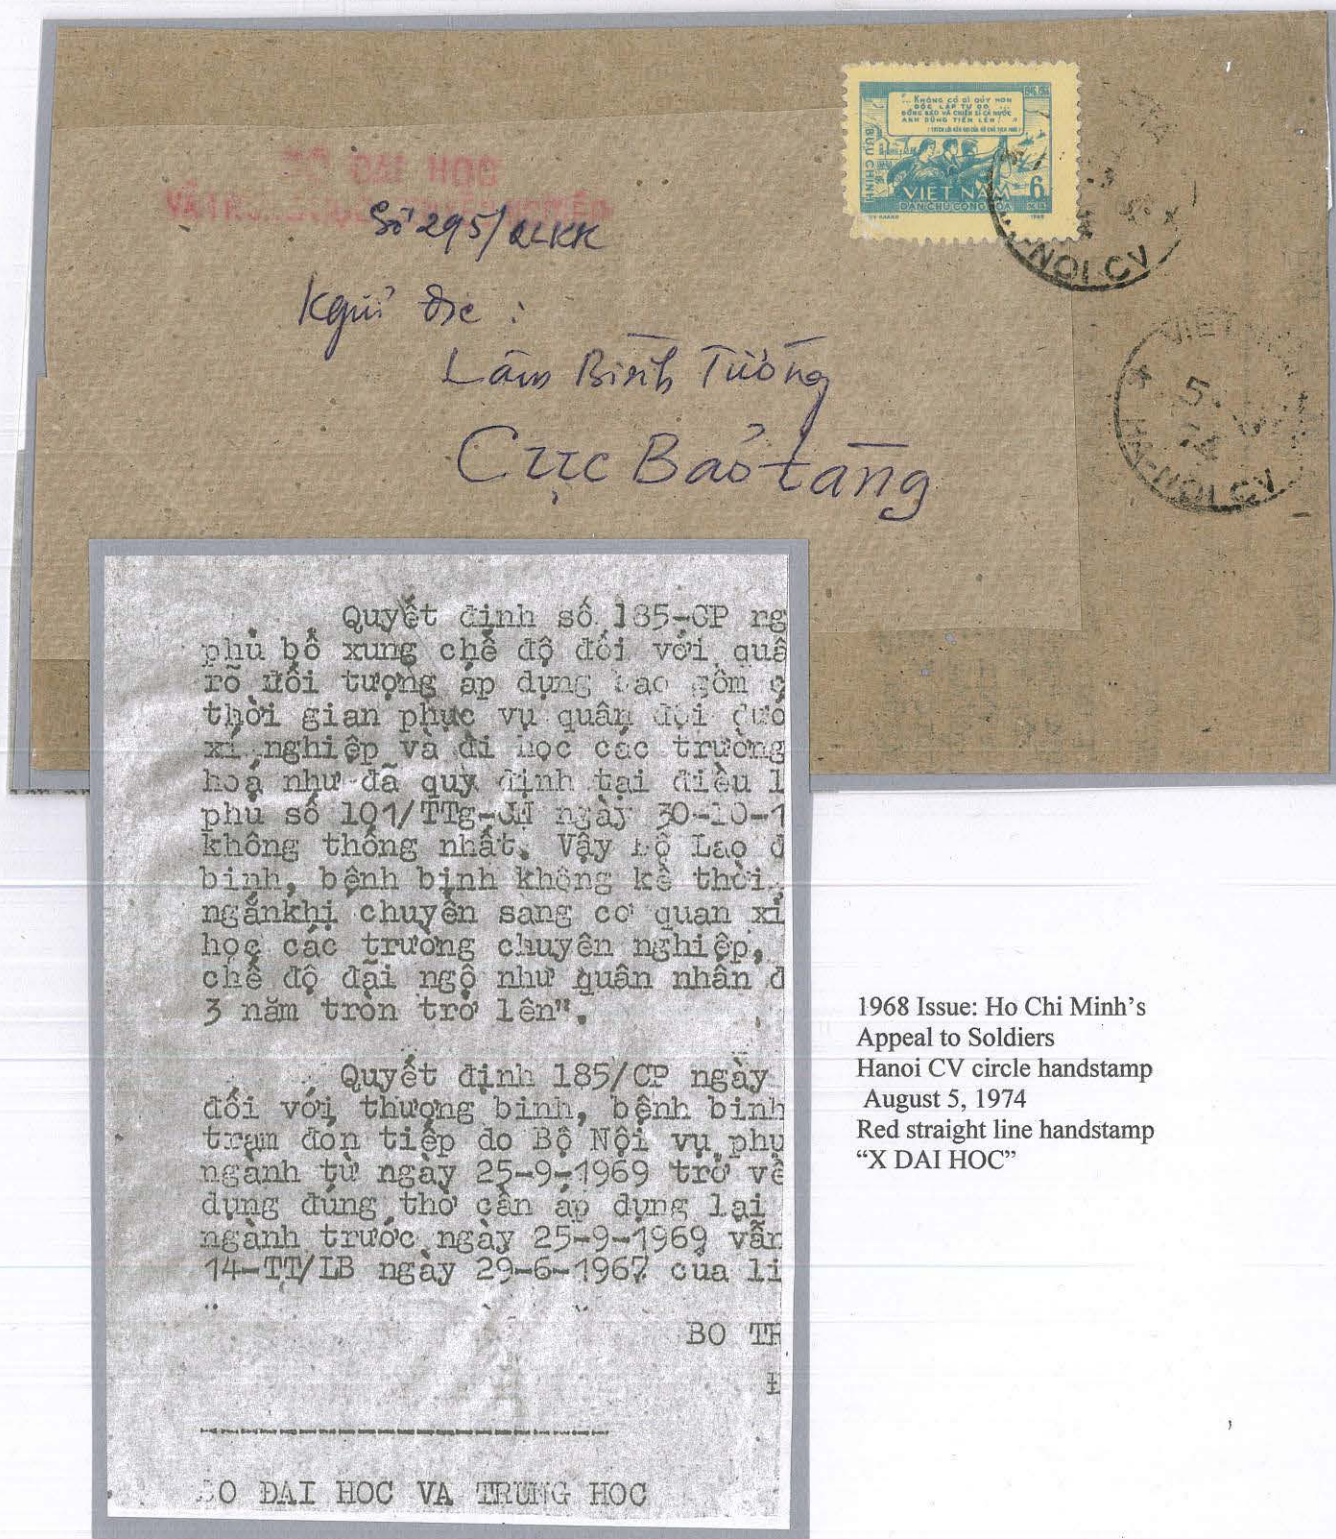 BỘ ĐẠI HỌC
Số 295/QLKK
Kgửi đ/c :
Lâm Bình Tường
Cục Bảo tàng
KHÔNG CÓ GÌ QUÝ HƠN
ĐỘC LẬP TỰ DO
ĐỒNG BÀO VÀ CHIẾN SĨ CẢ NƯỚC
ANH DŨNG TIẾN LÊN!
BƯU CHÍNH
VIỆT NAM
DÂN CHỦ CỘNG HÒA
6
XU
NOI CV
VIET NAM
5
74
HA-NOI CV
Quyết định số 185-CP ng
phủ bổ xung chế độ đối với quâ
rõ đối tượng áp dụng bao gồm c
thời gian phục vụ quân đội đượ
xí nghiệp và đi học các trường
hoá như đã quy định tại điều l
phủ số 101/TTg- ngày 30-10-1
không thống nhất. Vậy Bộ Lao đ
binh, bệnh binh không kể thời
ngắnkhi chuyển sang cơ quan xí
học các trường chuyên nghiệp,
chế độ đãi ngộ như quân nhân đ
3 năm tròn trở lên".
Quyết định 185/CP ngày
đối với thương binh, bệnh binh
trạm đón tiếp do Bộ Nội vụ phụ
ngành từ ngày 25-9-1969 trở về
dụng đúng thờ cần áp dụng lại
ngành trước ngày 25-9-1969 vẫn
14-TT/LB ngày 29-6-1967 của li
BO TR
BO ĐAI HOC VA TRUNG HOC
1968 Issue: Ho Chi Minh's
Appeal to Soldiers
Hanoi CV circle handstamp
August 5, 1974
Red straight line handstamp
“X DAI HOC”